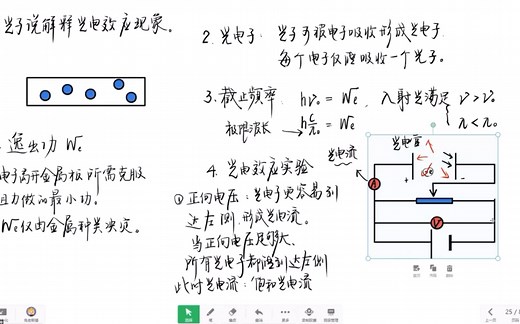 光子说解释光电效应现象。
逸出功 We
电子离开金属板所需克服
阻力做的最小功。
We仅由金属种类决定。
2. 光电子: 光子可被电子吸收形成光电子
每个电子仅吸收一个光子。
3. 截止频率: hν₀ = We, 入射光满足 { ν > ν₀
极限波长 → h c/λ₀ = We { λ < λ₀
4. 光电效应实验
① 正向电压: 光电子更容易到
达左侧, 形成光电流。
当正向电压足够大,
所有光电子都得到达左侧
此时光电流: 饱和光电流
光电流
光电管
A
V
+
-
25 /